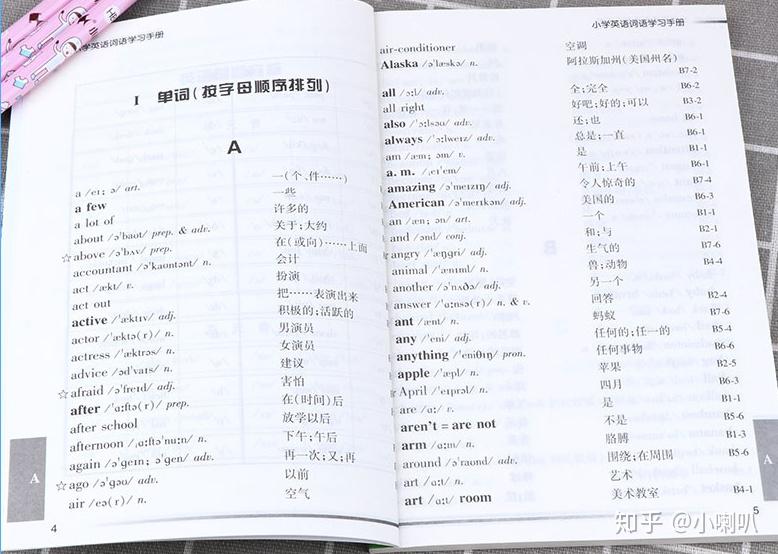 小学英语词语学习手册
I 单词(按字母顺序排列)
A
a /eɪ; ə/ art. 一(个、件……)
a few 一些
a lot of 许多的
about /ə'baʊt/ prep. & adv. 关于;大约
☆above /ə'bʌv/ prep. 在(或向)……上面
accountant /ə'kaʊntənt/ n. 会计
act /ækt/ v. 扮演
act out 把……表演出来
active /'æktɪv/ adj. 积极的;活跃的
actor /'æktə(r)/ n. 男演员
actress /'æktrəs/ n. 女演员
advice /əd'vaɪs/ n. 建议
☆afraid /ə'freɪd/ adj. 害怕
after /'ɑːftə(r)/ prep. 在(时间)后
after school 放学以后
afternoon /ˌɑːftə'nuːn/ n. 下午;午后
again /ə'geɪn; ə'gen/ adv. 再一次;又;再
☆ago /ə'gəʊ/ adv. 以前
air /eə(r)/ n. 空气
A
4
小学英语词语学习手册
air-conditioner 空调
Alaska /ə'læskə/ n. 阿拉斯加州(美国州名) B7-2
all /ɔːl/ adv. 全;完全 B6-2
all right 好吧;好的;可以 B3-2
also /'ɔːlsəʊ/ adv. 还;也 B6-1
always /'ɔːlweɪz/ adv. 总是;一直 B6-1
am /æm; əm/ v. 是 B1-1
a. m. /ˌeɪ'em/ 午前;上午 B6-1
amazing /ə'meɪzɪŋ/ adj. 令人惊奇的 B7-4
American /ə'merɪkən/ adj. 美国的 B6-3
an /æn; ən/ art. 一个 B1-1
and /ənd/ conj. 和;与 B2-1
angry /'æŋgri/ adj. 生气的 B7-6
animal /'ænɪml/ n. 兽;动物 B4-4
another /ə'nʌðə/ adj. 另一个
answer /'ɑːnsə(r)/ n. & v. 回答 B2-4
ant /ænt/ n. 蚂蚁 B7-6
any /'eni/ adj. 任何的;任一的 B5-4
anything /'eniθɪŋ/ pron. 任何事物 B6-6
apple /'æpl/ n. 苹果 B2-5
April /'eɪprəl/ n. 四月 B6-3
are /ɑː/ v. 是 B1-1
aren't = are not 不是 B5-6
arm /ɑːm/ n. 胳膊 B1-3
around /ə'raʊnd/ adv. 围绕;在周围 B5-6
art /ɑːt/ n. 艺术
art /ɑːt/ room 美术教室 B4-1
A
5
知乎 @小喇叭